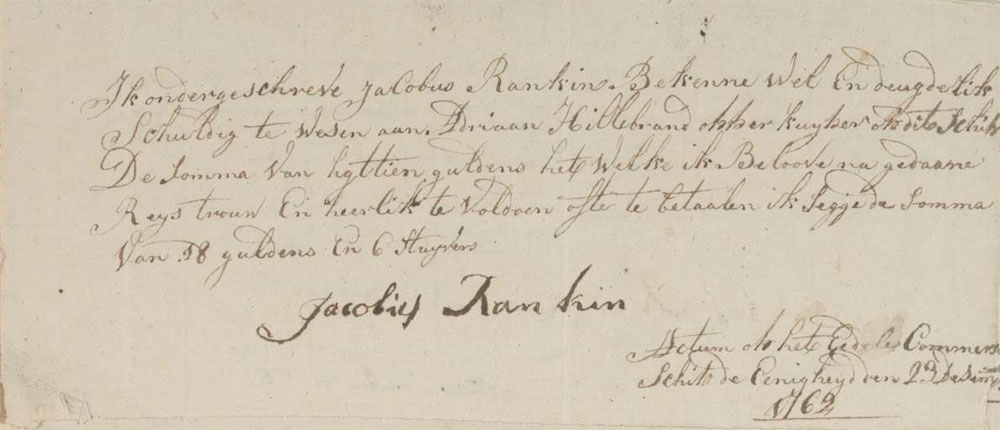 Ik ondergeschreve Jacobus Rankin Bekenne Wel En deugdelik
Schuldig te Wesen aan Adriaan Hillebrand opper kuyper op dito Schip
De Somma Van hgttien guldens het Welke ik Beloove na gedaane
Reys trouw En heerlik te Voldoen ofte te betaalen ik Segge de Somma
Van 18 guldens En 6 Stuyvers
Jacobus Rankin
Actum op het Eedele Commers
Schip de Eenigheyd den 23
1762